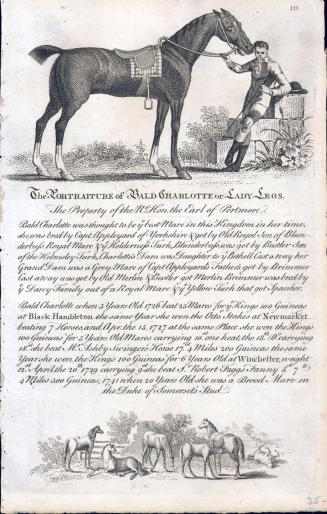 10
The PORTRAITURE of BALD CHARLOTTE or LADY LEGS.
The Property of the Rt. Hon. the Earl of Portmore.
Bald Charlotte was thought to be ye best Mare in this Kingdom in her time,
she was bred by Capt. Appleyard of Yorkshire & got by Old Royal Son of Blun-
derbuss Royal Mare & ye Holderness Turk, Blunderbuss was got by Bustler Son
of the Helmsley Turk, Charlotte's Dam was Daughter to ye Bethell Cast a way her
Grand Dam was a Grey Mare of Capt. Appleyards Fathers got by Brimmer
Cast a way was got by Old Merlin & Bustler got Merlin Brimmer was bred by
ye Darcy Family out of a Royal Mare & ye Yellow Turk that got Spanker.
Bald Charlotte when 5 Years Old 1726 beat 23 Mares for ye Kings 100 Guineas
at Black Hambleton the same Year she won the Octr. Stakes at Newmarket
beating 7 Horses, and Apr. the 15. 1727 at the same Place she won the Kings
100 Guineas for 5 Years Old Mares carrying 10. one heat, the 18th. Do. carrying
18st. she beat Mr. Ashby Swinger's Horse 17st. 4 Miles 200 Guineas the same
Year she won the Kings 100 Guineas for 6 Years Old at Winchester, weight
12st. April the 20th 1729 carrying 9st. she beat Sr. Robert Faggs Fanny 8st. 7lb.
4 Miles 300 Guineas, 1741 when 20 Years Old she was a Brood Mare in
the Duke of Somerset's Stud.
35-